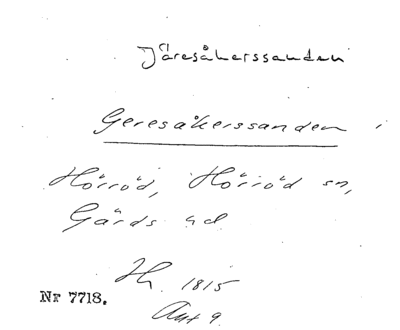 Järesåkerssanden
Geresåkerssanden i
Hörröd, Hörröd sn,
Gärds hd
Hy. 1815
Nr 7718.
Akt 9.